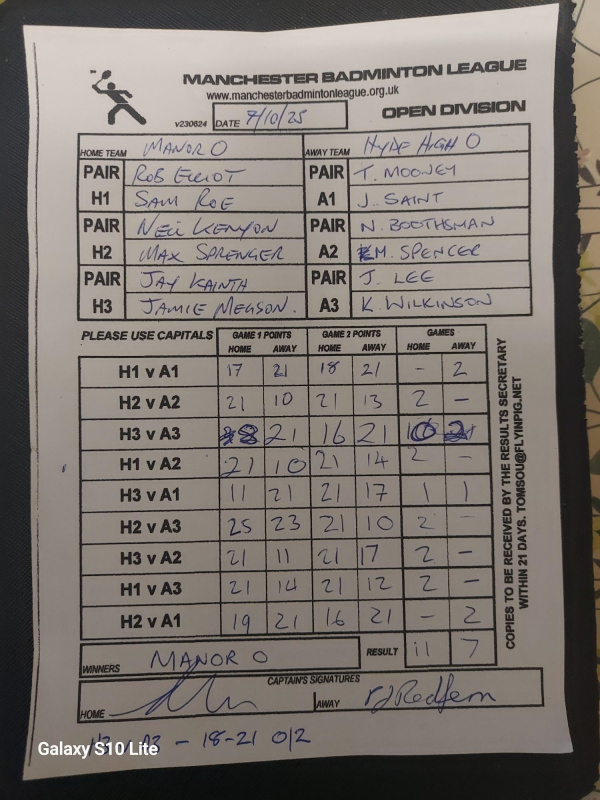 MANCHESTER BADMINTON LEAGUE
www.manchesterbadmintonleague.org.uk
v230624 DATE 7/10/25 OPEN DIVISION
HOME TEAM MANOR O AWAY TEAM HYDE HIGH O
PAIR ROB ELLIOT PAIR T. MOONEY
H1 SAM ROE A1 J. SAINT
PAIR NEIL KENYON PAIR N. BOOTHSMAN
H2 MAX SPRENGER A2 M. SPENCER
PAIR JAY KAINTH PAIR J. LEE
H3 JAMIE MEGSON. A3 K. WILKINSON
PLEASE USE CAPITALS GAME 1 POINTS GAME 2 POINTS GAMES
HOME AWAY HOME AWAY HOME AWAY
H1 v A1 17 21 18 21 - 2
H2 v A2 21 10 21 13 2 -
H3 v A3 18 21 16 21 0 2
H1 v A2 21 10 21 14 2 -
H3 v A1 11 21 21 17 1 1
H2 v A3 25 23 21 10 2 -
H3 v A2 21 11 21 17 2 -
H1 v A3 21 14 21 12 2 -
H2 v A1 19 21 16 21 - 2
WINNERS MANOR O RESULT 11 7
CAPTAIN'S SIGNATURES
HOME AWAY RJ Redfern
COPIES TO BE RECEIVED BY THE RESULTS SECRETARY
WITHIN 21 DAYS. TOMSOU@FLYINPIG.NET
A3 - 18-21 0/2
Galaxy S10 Lite